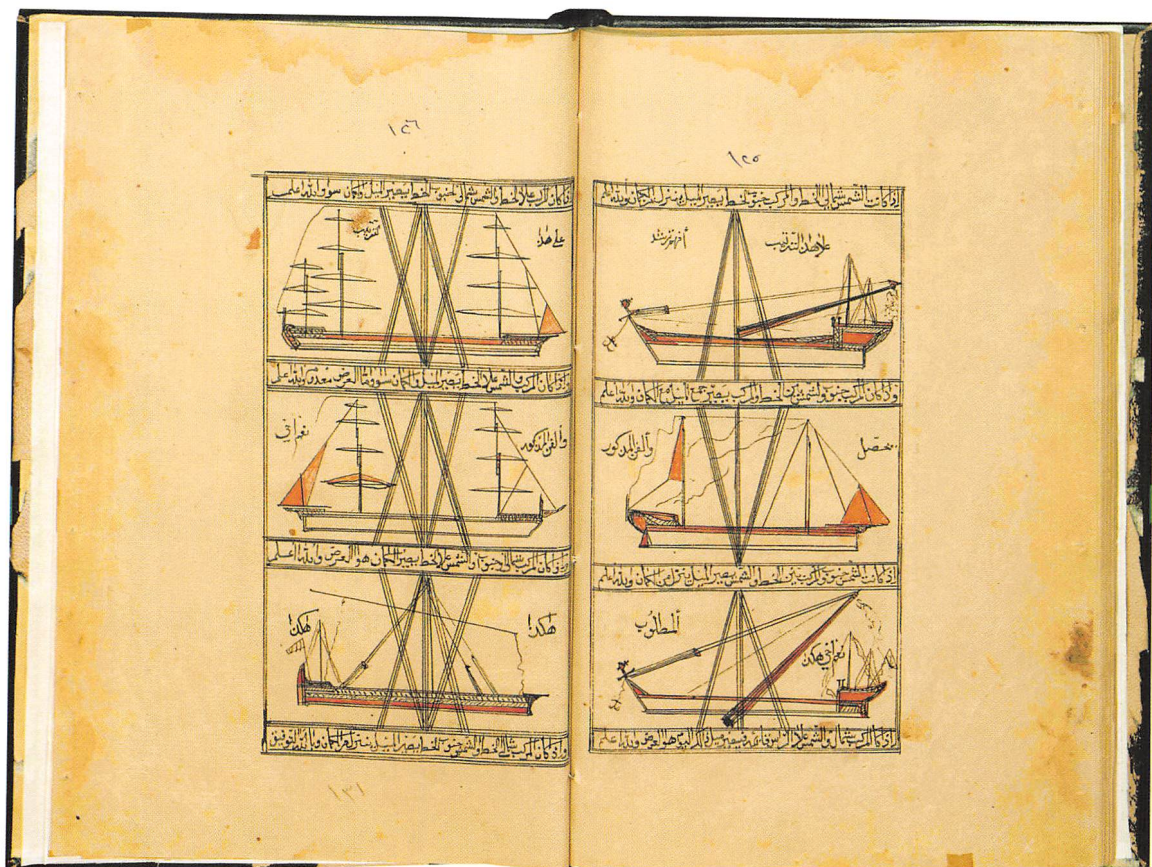 ١٢٥
اذا كانت الشمس شمالي الخط والمركب جنوبي الخط يصير الميل ينزل من الكمان والله اعلم
على هذا الترتيب
أفهم ترشد
واذا كان المركب جنوبي والشمس بين الخط والمركب يصير جمع الميل مع الكمان والله اعلم
محصل
والفن المذكور
اذا كانت الشمس جنوبي والمركب بين الخط والشمس يصير الميل ينزل من الكمان والله اعلم
المطلوب
نعم اخي هكذا
اذا كان المركب شمال والشمس على الراس فيصير ميل ذلك اليوم هو العرض والله اعلم
١٢٦
اذا كان المركب على الخط والشمس شمالي او جنوبي الخط يصير الميل والكمان سوى والله اعلم
على هذا
الترتيب
واذا كان المركب والشمس على الخط يصير الميل والكمان سوى العرض معدوم والله اعلم
والفن المذكور
نعم اخي
واذا كان المركب شمالي او جنوبي والشمس على الخط يصير الكمان هو العرض والله اعلم
هكذا
هكذا
واذا كان المركب شمالي الخط والشمس جنوبي الخط يصير الميل ينزل من الكمان وبالله التوفيق
١٣١